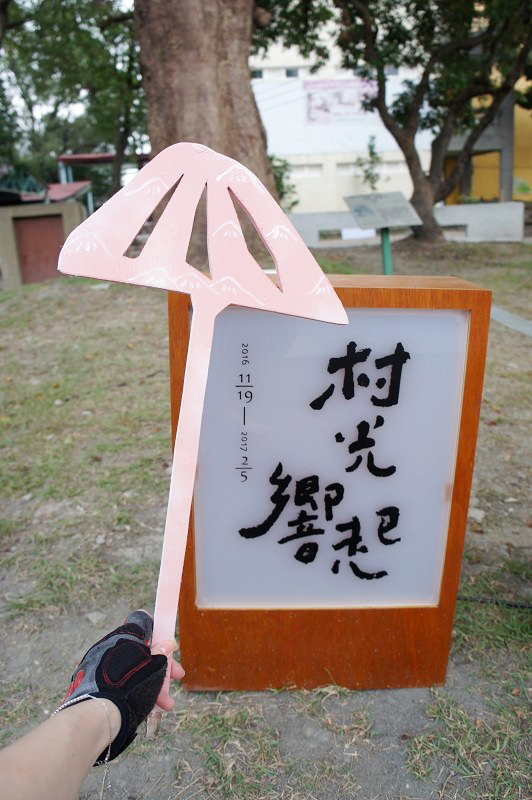 村光
響起
2016 11/19 — 2017 2/5